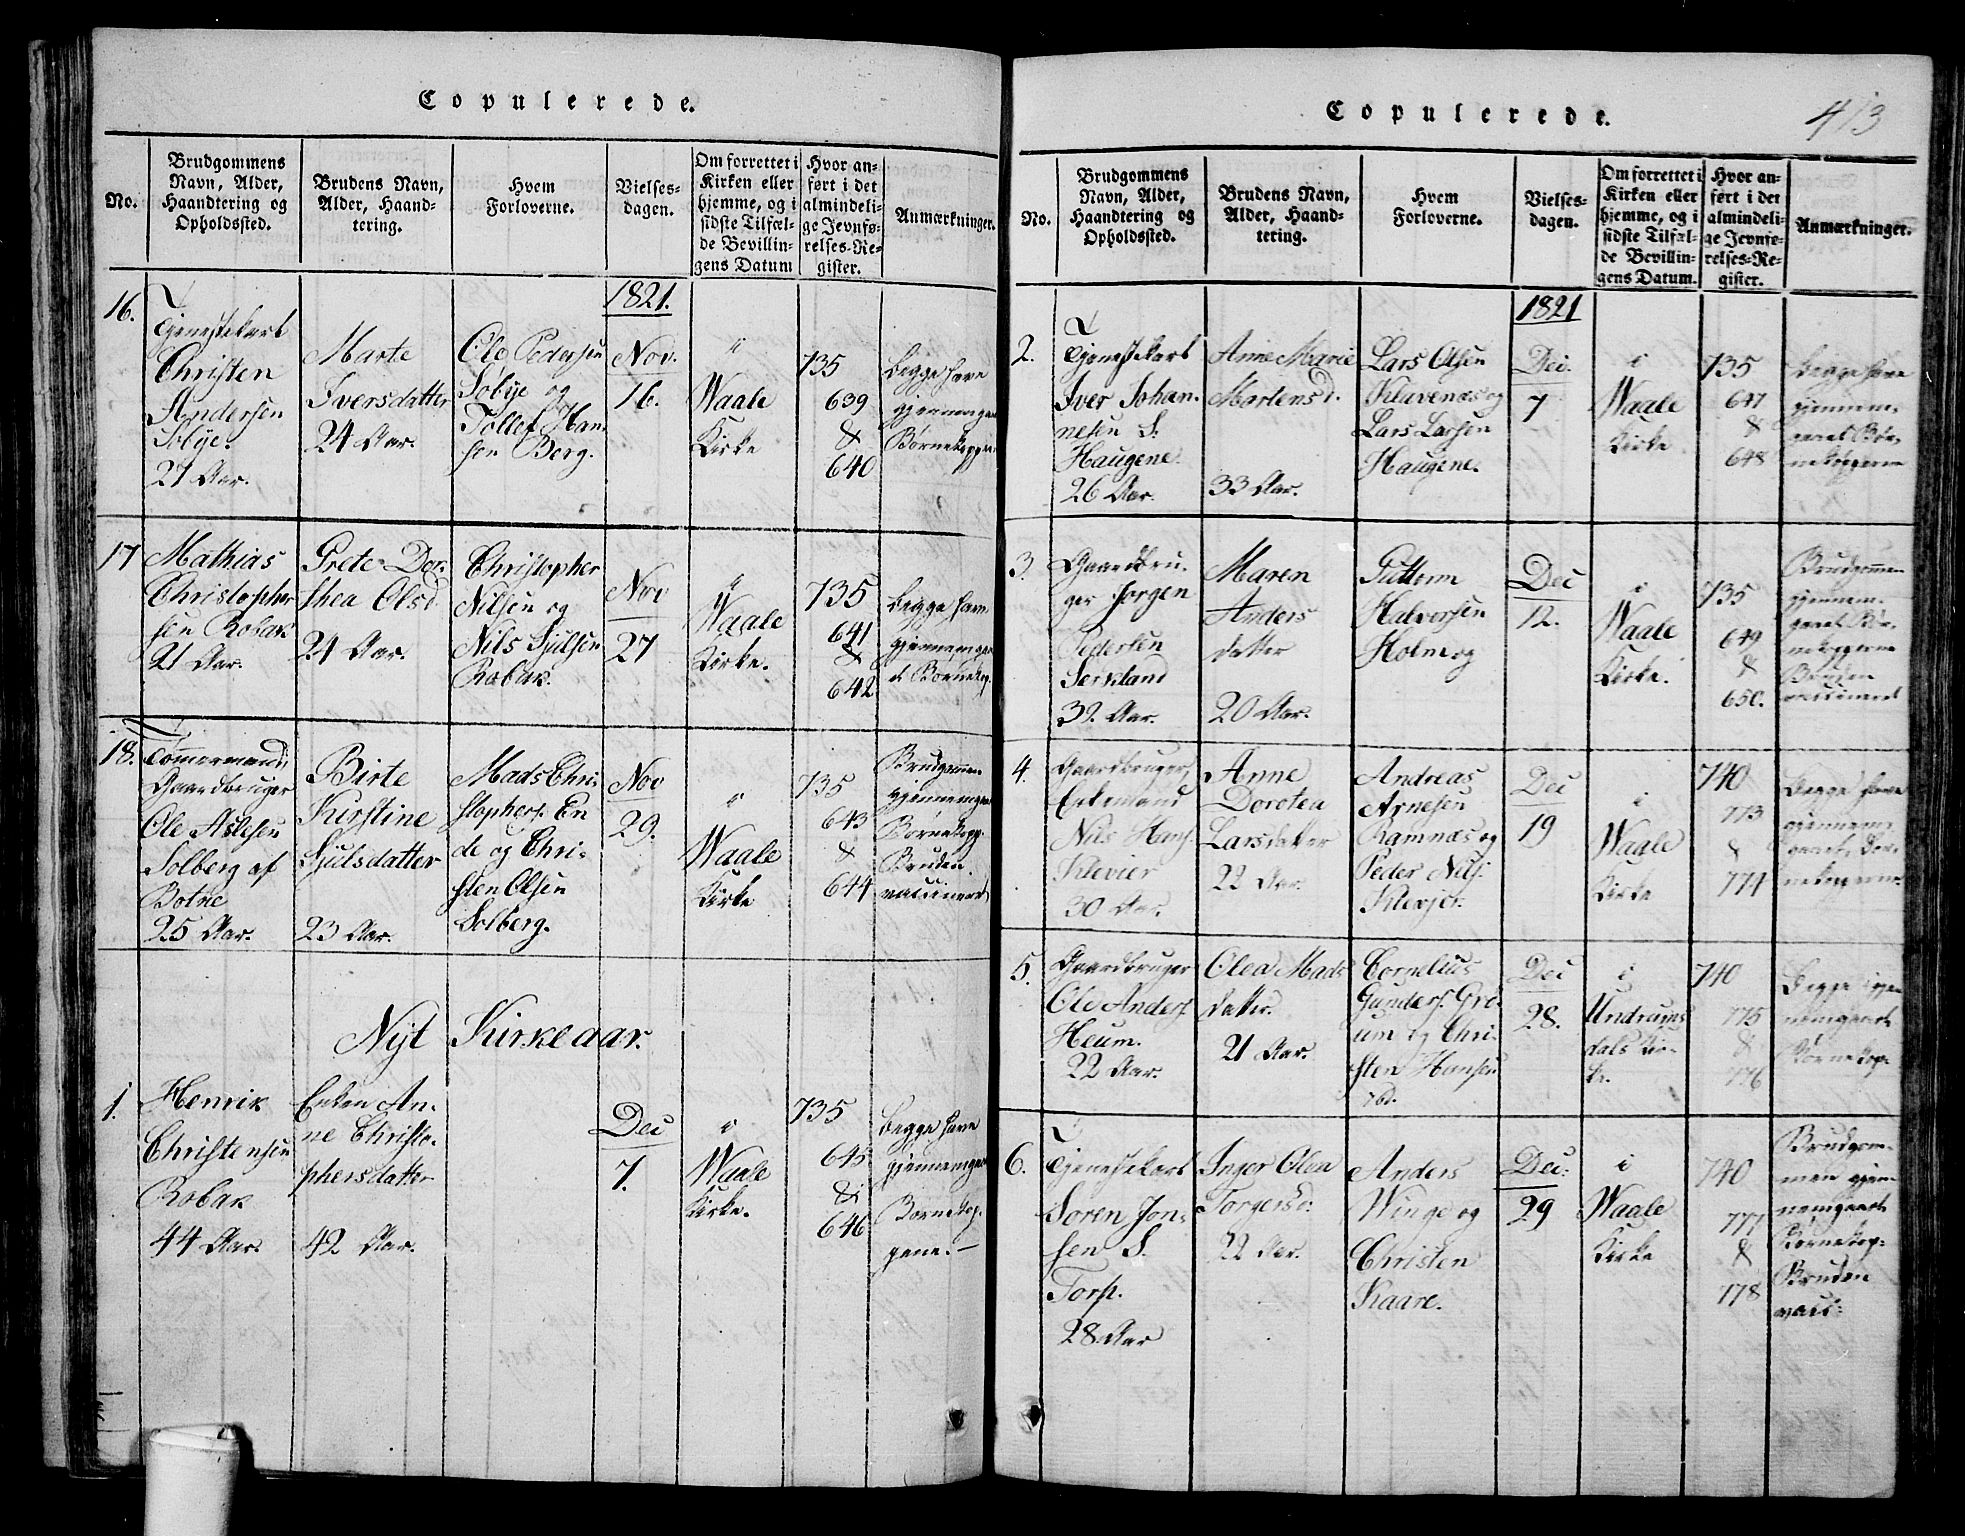 Copulerede.
No.
Brudgommens Navn, Alder, Haandtering og Opholdssted.
Brudens Navn, Alder, Haandtering.
Hvem Forloverne.
Vielses-dagen.
Om forrettet i Kirken eller hjemme, og i sidste Tilfælde Bevillingens Datum
Hvor anført i det almindelige Jevnførelses-Register.
Anmærkninger.
1821.
16.
Tjenestekarl
Christen
Andersen
Søbye.
27 Aar.
Marte
Iversdatter
24 Aar.
Ole Pedersen
Søbye og
Tollef Han-
sen Berg.
Nov.
16.
i
Waale
Kirke
735
639
&
640
Begge have
gjennemgaaet
Børnekopperne
17
Mathias
Christopher
sen Robak
21 Aar.
Grete Dor-
thea Olsd
24 Aar.
Christopher
Nilsen og
Nils Sjulsen
Robak.
Nov
27
i
Waale
Kirke.
735
641
&
642
Begge have
gjennemgaa-
et Børnekop.
18.
Tømmermand,
Gaardbruger
Ole Aslesen
Solberg af
Botne
25 Aar.
Birte
Kirstine
Sjulsdatter
23 Aar.
Mads Chri-
stophers. En
de og Chri-
sten Olsen
Solberg.
Nov
29.
i
Waale
Kirke
735
643
&
644
Brudgommen
gjennemgaaet
Børnekopp.
Bruden
vaccineret
Nyt Kirkeaar.
1.
Henrik
Christensen
Robak
44 Aar.
Enken An-
ne Christo-
phersdatter
42 Aar.
Dec
7.
i
Waale
Kirke.
735
645
&
646
Begge have
gjennemgaaet
Børnekop-
pene.-
Copulerede.
413
No.
Brudgommens Navn, Alder, Haandtering og Opholdssted.
Brudens Navn, Alder, Haandtering.
Hvem Forloverne.
Vielses-dagen.
Om forrettet i Kirken eller hjemme, og i sidste Tilfælde Bevillingens Datum.
Hvor anført i det almindelige Jevnførelses-Register.
Anmærkninger.
1821
2.
Tjenestekarl
Iver Johan-
nesen S.
Haugene.
26 Aar.
Anne Marie
Martensd.
33 Aar.
Lars Olsen
Klavenæs og
Lars Larsen
Haugene.
Dec.
7
i
Waale
Kirke
735
647
&
648
Begge have
gjennem-
gaaet Bør-
nekopperne
3.
Gaardbru-
ger Jørgen
Pedersen
Serkland
32. Aar.
Maren
Anders
datter
20 Aar.
Guttorm
Halvorsen
Holm og
Dec
12.
i
Waale
Kirke.
735
649
&
650.
Brudgommen
gjennem-
gaaet Bør-
nekopperne
Bruden
vaccineret
4.
Gaardbruger,
Enkemand
Nils Hans.
Klevier
30 Aar.
Anne
Dorotea
Larsdatter
22 Aar.
Andreas
Arnesen
Ramnæs og
Peder Nils.
Klevjer.
Dec
19
i
Waale
Kirke
740
773
&
774
Begge have
gjennem-
gaaet Bør-
nekopperne.
5.
Gaardbruger
Ole Anders.
Heum.
22 Aar.
Olea Mads
datter.
21 Aar.
Cornelius
Gunders. Gre-
um og Chri-
sten Hansen
Dec
28.
i
Undrums
dals Kir-
ke.
740
775
&
776
Begge igjen
nemgaaet
Børnekop.
6.
Tjenestekarl
Søren Jon-
sen S.
Torp.
28 Aar
Inger Olea
Torgersd.
22 Aar.
Anders
Winge og
Christen
Kaare.
Dec:
29
i
Waale
Kirke
740
777
&
778
Brudgom-
men gjen-
nemgaaet
Børnekop:
Bruden
vacc: